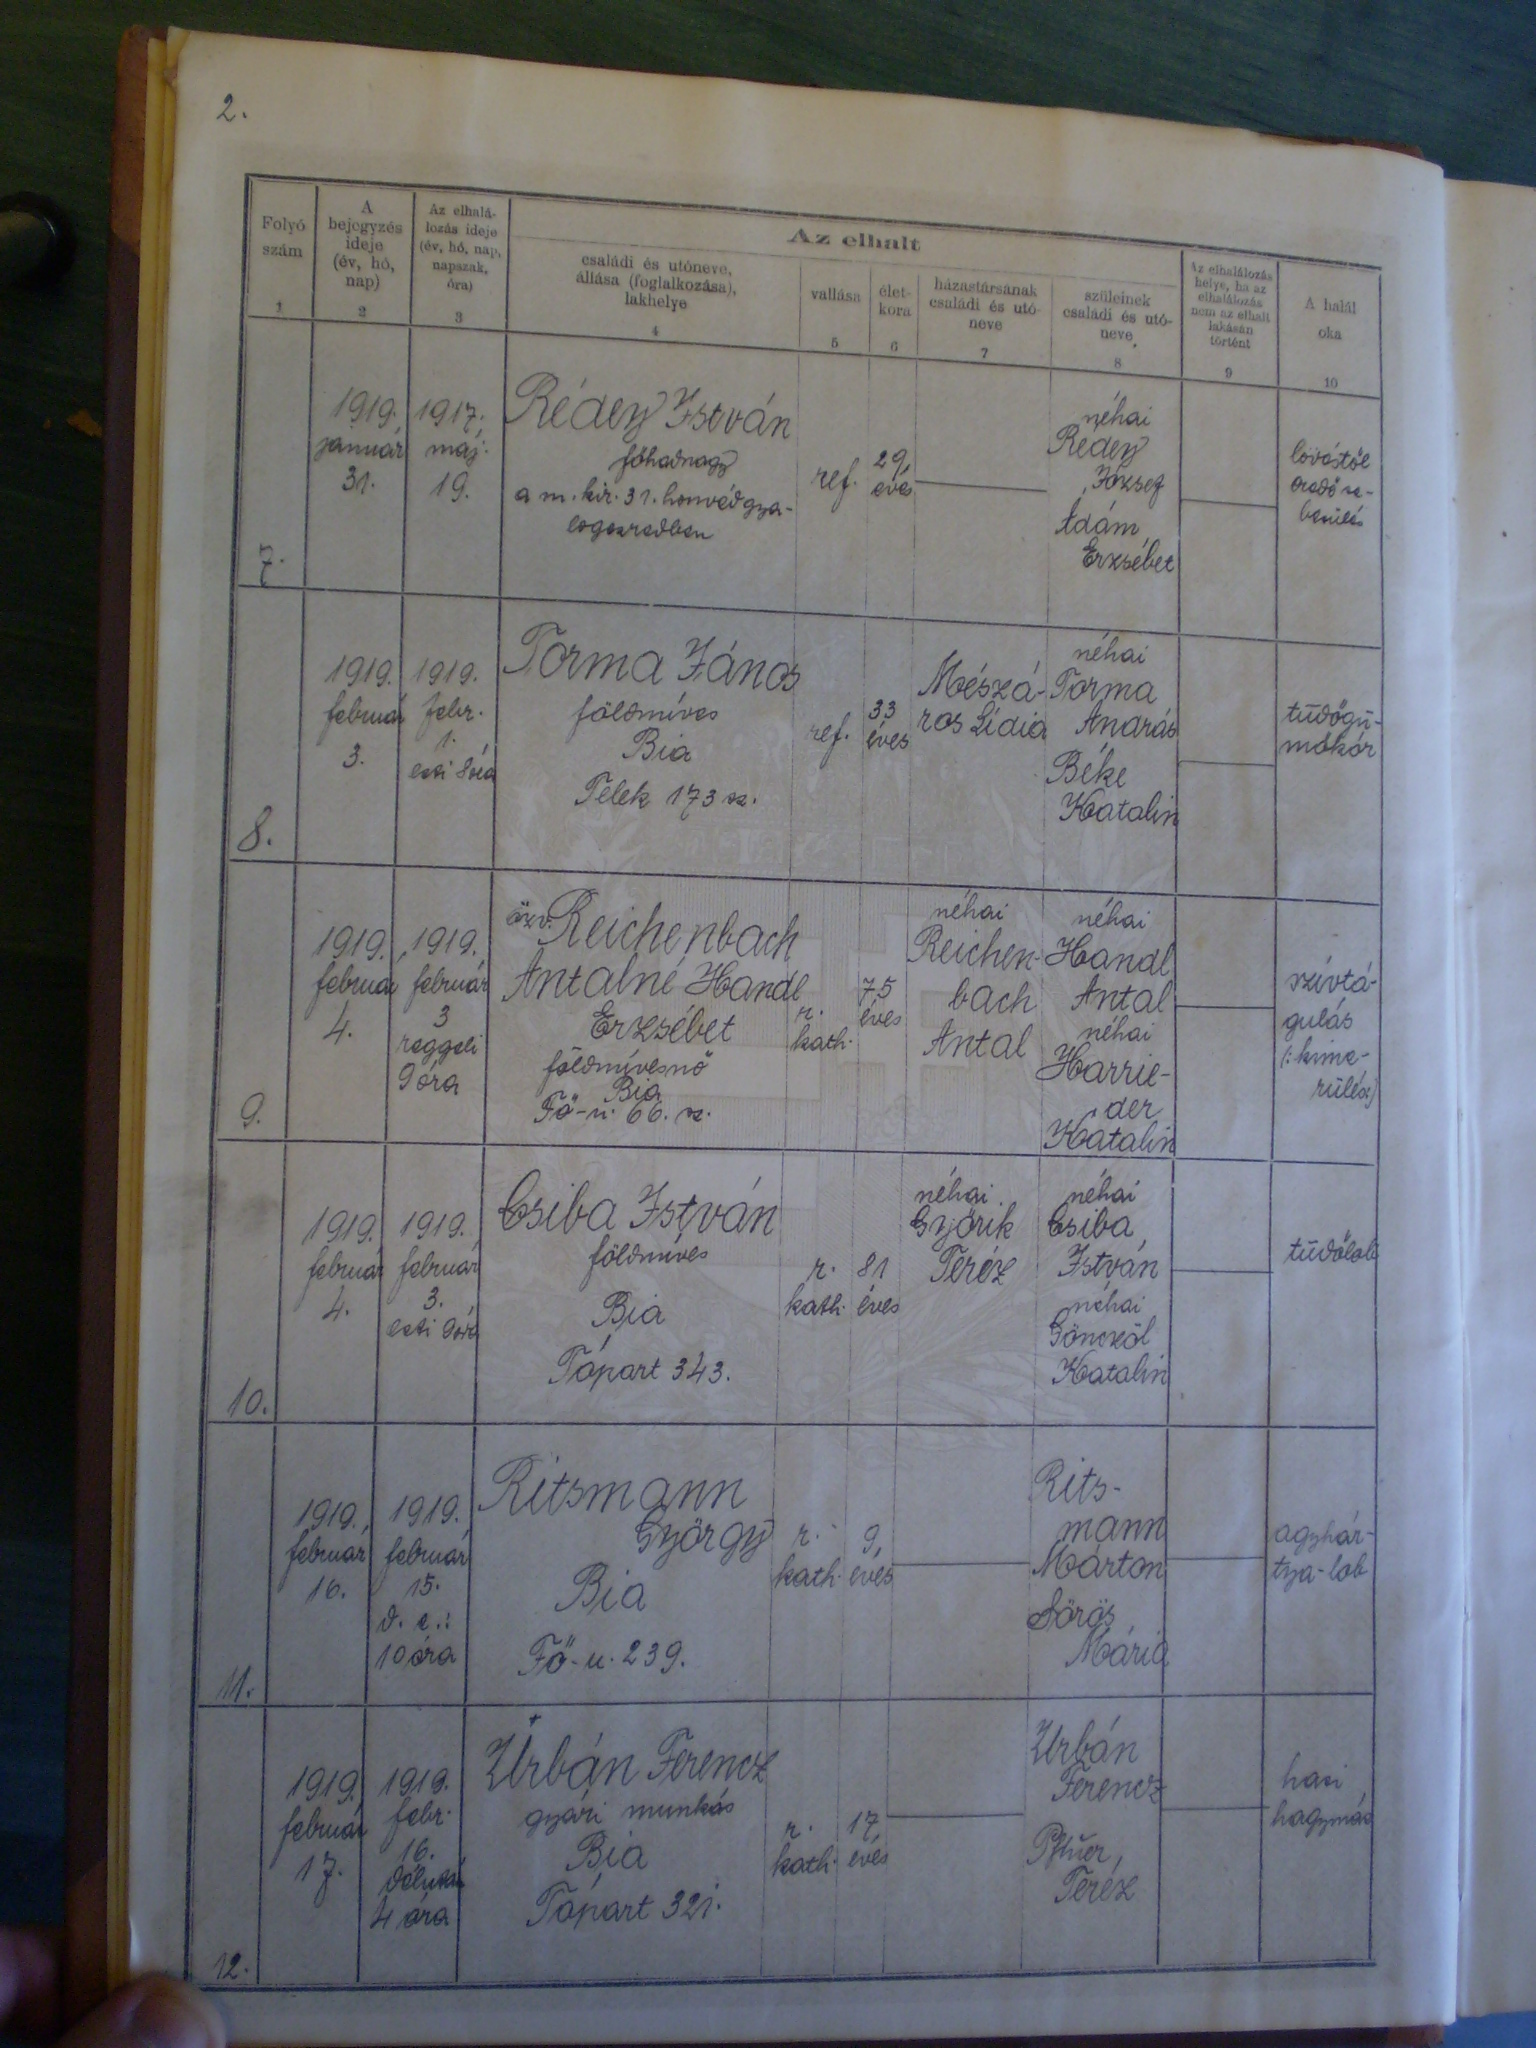 2.
Az elhalt
Folyó
szám
1
A
bejegyzés
ideje
(év, hó,
nap)
2
Az elhalá-
lozás ideje
(év, hó, nap,
napszak,
óra)
3
családi és utóneve,
állása (foglalkozása),
lakhelye
4
vallása
5
élet-
kora
6
házastársának
családi és utó-
neve
7
szüleinek
családi és utó-
neve
8
Az elhalálozás
helye, ha az
elhalálozás
nem az elhalt
lakásán
történt
9
A halál
oka
10
7.
1919.
január
31.
1917.
máj.
19.
Rédey István
főhadnagy
a m. kir. 31. honvéd gya-
logezredben
ref.
29
éves
néhai
Redey
József
Ádám
Erzsébet
lövéstől
eredő se-
besülés
8.
1919.
február
3.
1919.
febr.
1.
esti 8 óra
Torma János
földmíves
Bia
Telek 173 sz.
ref.
33
éves
Mészá-
ros Lídia
néhai
Torma
András
Béke
Katalin
tüdőgü-
mőkór
9.
1919.
február
4.
1919.
február
3
reggeli
9 óra
özv. Reichenbach
Antalné Handl
Erzsébet
földmívesnő
Bia
Fő-u. 66. sz.
r.
kath.
75
éves
néhai
Reichen-
bach
Antal
néhai
Handl
Antal
néhai
Harrie-
der
Katalin
szívtá-
gulás
(: kime-
rülés:)
10.
1919.
február
4.
1919.
február
3.
esti 9 óra
Csiba István
földmíves
Bia
Tópart 343.
r.
kath.
81
éves
néhai
Győrik
Teréz
néhai
Csiba
István
néhai
Gönczöl
Katalin
tüdőlob
11.
1919.
február
16.
1919.
február
15.
d. e.:
10 óra
Ritsmann
György
Bia
Fő-u. 239.
r.
kath.
9
éves
Rits-
mann
Márton
Sörös
Mária
agyhár-
tya-lob
12.
1919.
február
17.
1919.
febr.
16.
délután
4 óra
Urbán Ferencz
gyári munkás
Bia
Tópart 321.
r.
kath.
17
éves
Urbán
Ferencz
Teréz
hasi
hagymáz